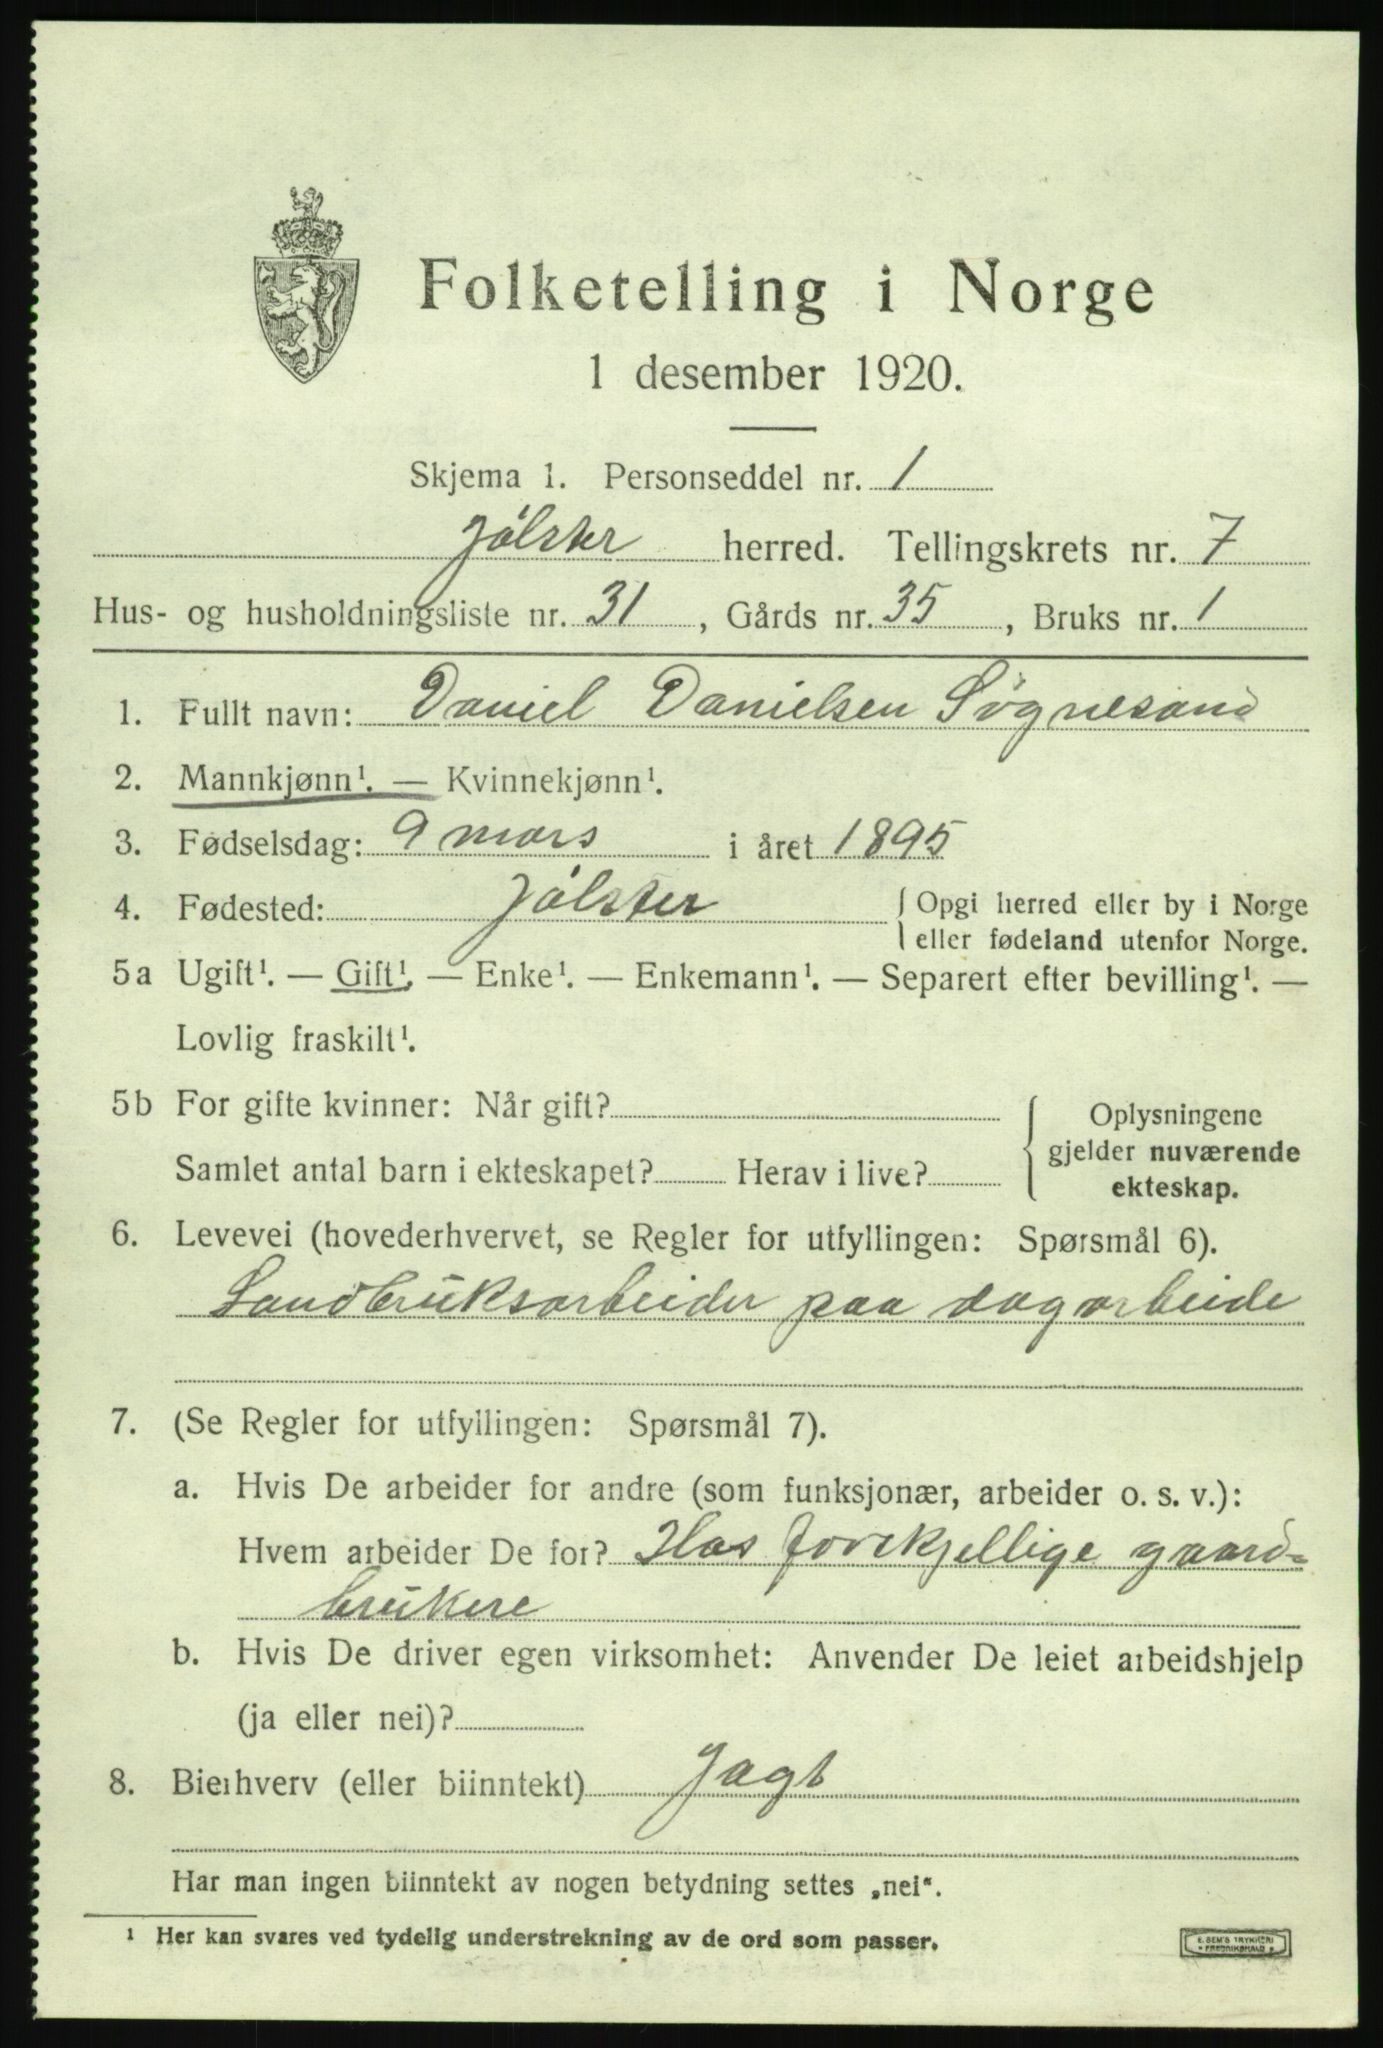 Folketelling i Norge
1 desember 1920.
Skjema 1. Personseddel nr. 1
Jølster herred. Tellingskrets nr. 7
Hus- og husholdningsliste nr. 31, Gårds nr. 35, Bruks nr. 1
1. Fullt navn: Daniel Danielsen Søgnesand
2. Mannkjønn¹. — Kvinnekjønn¹.
3. Fødselsdag: 9 mars i året 1895
4. Fødested: Jølster { Opgi herred eller by i Norge
eller fødeland utenfor Norge.
5a Ugift¹. — Gift¹. — Enke¹. — Enkemann¹. — Separert efter bevilling¹. —
Lovlig fraskilt¹.
5b For gifte kvinner: Når gift?
Samlet antal barn i ekteskapet? Herav i live?
{ Oplysningene
gjelder nuværende
ekteskap.
6. Levevei (hovederhvervet, se Regler for utfyllingen: Spørsmål 6).
Landbruksarbeider paa dagarbeide
7. (Se Regler for utfyllingen: Spørsmål 7).
a. Hvis De arbeider for andre (som funksjonær, arbeider o. s. v.):
Hvem arbeider De for? Hos forskjellige gaard=
brukere
b. Hvis De driver egen virksomhet: Anvender De leiet arbeidshjelp
(ja eller nei)?
8. Bierhverv (eller biinntekt) Jagt
Har man ingen biinntekt av nogen betydning settes „nei“.
¹ Her kan svares ved tydelig understrekning av de ord som passer.
E. SEM'S TRYKKERI
FREDRIKSHALD